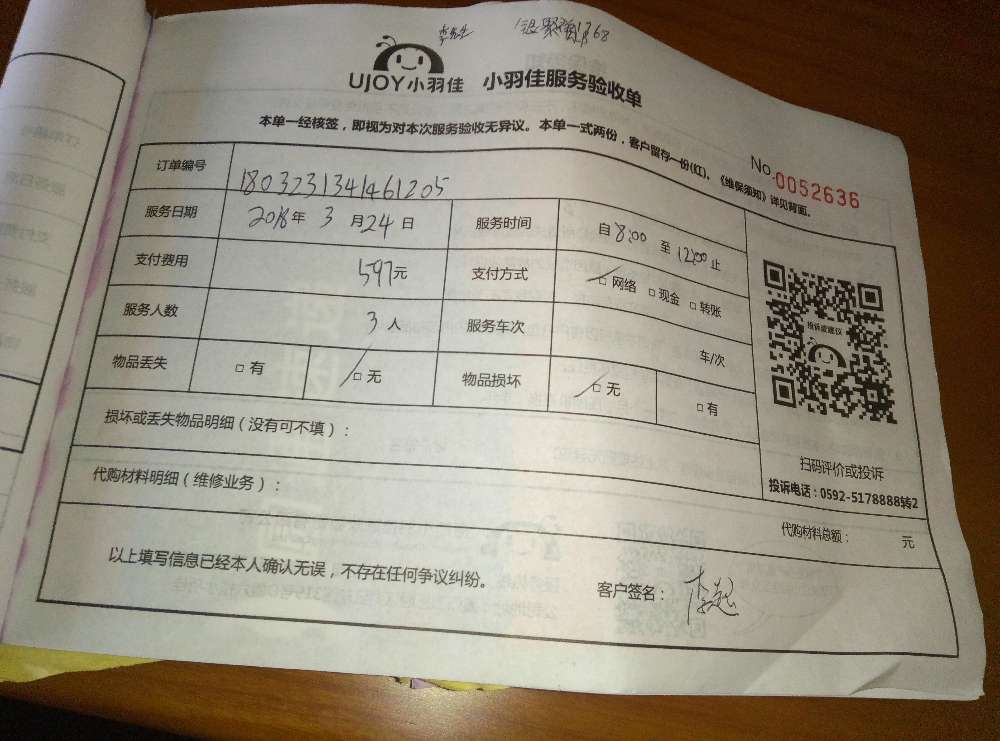 李先生
UJOY小羽佳 小羽佳服务验收单
本单一经核签，即视为对本次服务验收无异议。本单一式两份，客户留存一份(红)，《维保须知》详见背面。
No.0052636
订单编号 1803231341461205
服务日期 2018年 3 月 24 日 服务时间 自 8:00 至 12:00 止
支付费用 597元 支付方式 □ 网络 □ 现金 □ 转账
服务人数 3 人 服务车次 车/次
物品丢失 □ 有 □ 无 物品损坏 □ 无 □ 有
损坏或丢失物品明细（没有可不填）：
代购材料明细（维修业务）：
投诉或建议
扫码评价或投诉
投诉电话：0592-5178888转2
代购材料总额： 元
以上填写信息已经本人确认无误，不存在任何争议纠纷。 客户签名：